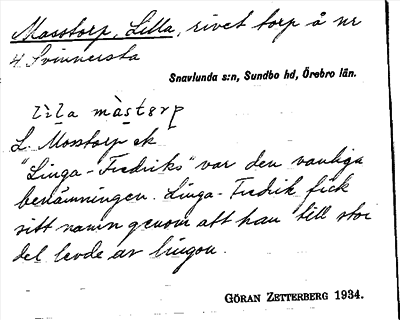 Mosstorp, Lilla, rivet torp å nr
4 Svinnersta
Snavlunda s:n, Sundbo hd, Örebro län.
L. Mosstorp ek
"Linga-Fredriks" var den vanliga
benämningen. Linga-Fredrik fick
sitt namn genom att han till stor
del levde av lingon.
GÖRAN ZETTERBERG 1934.